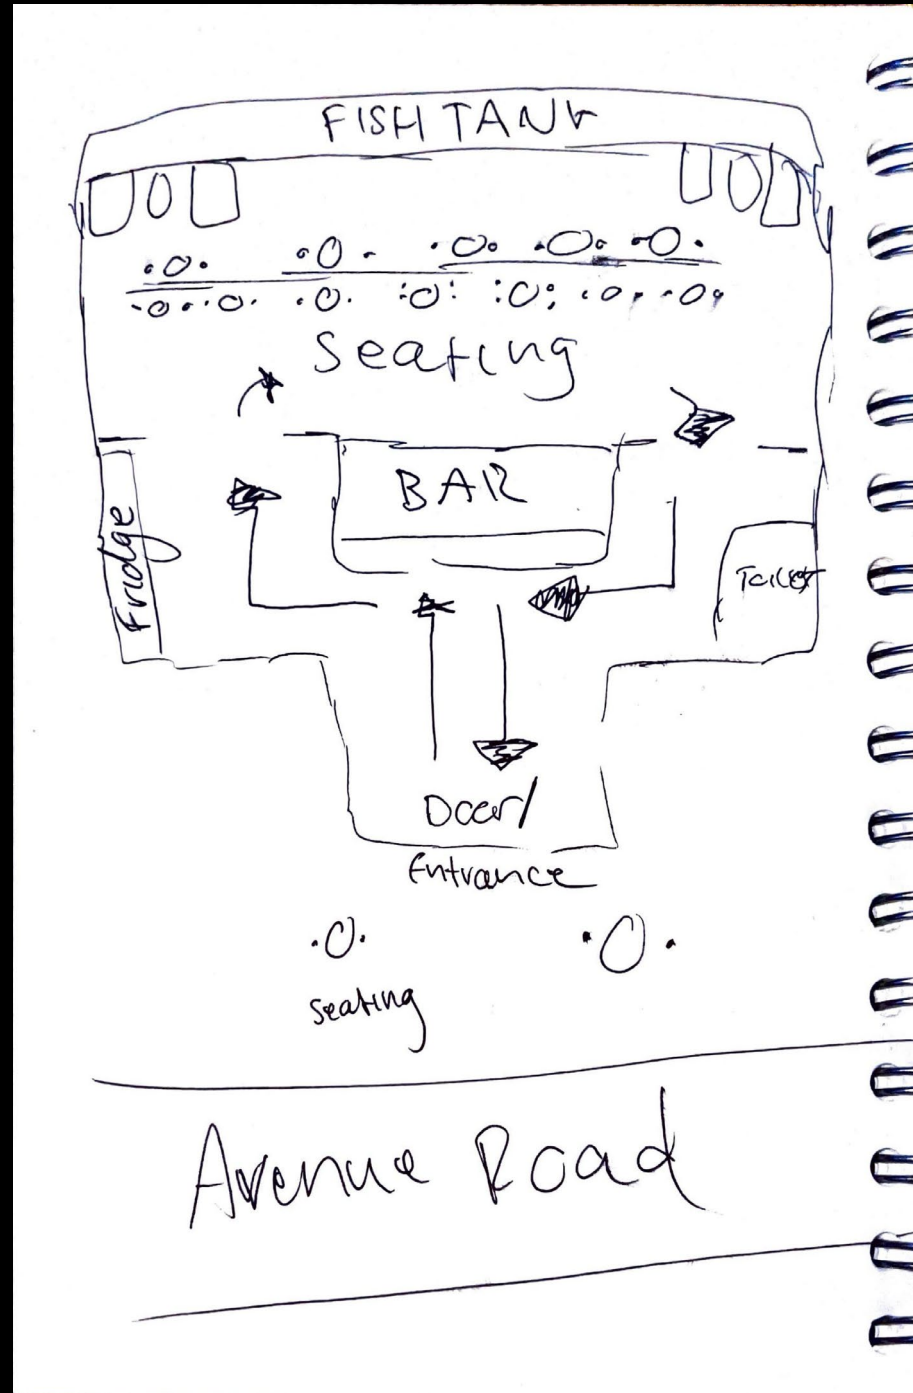 FISH TANK
Seating
BAR
Fridge
Toilet
Door/
Entrance
seating
Avenue Road